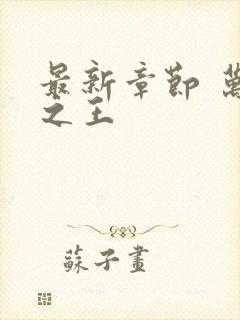 最新章節 萬
之王
蘇子畫